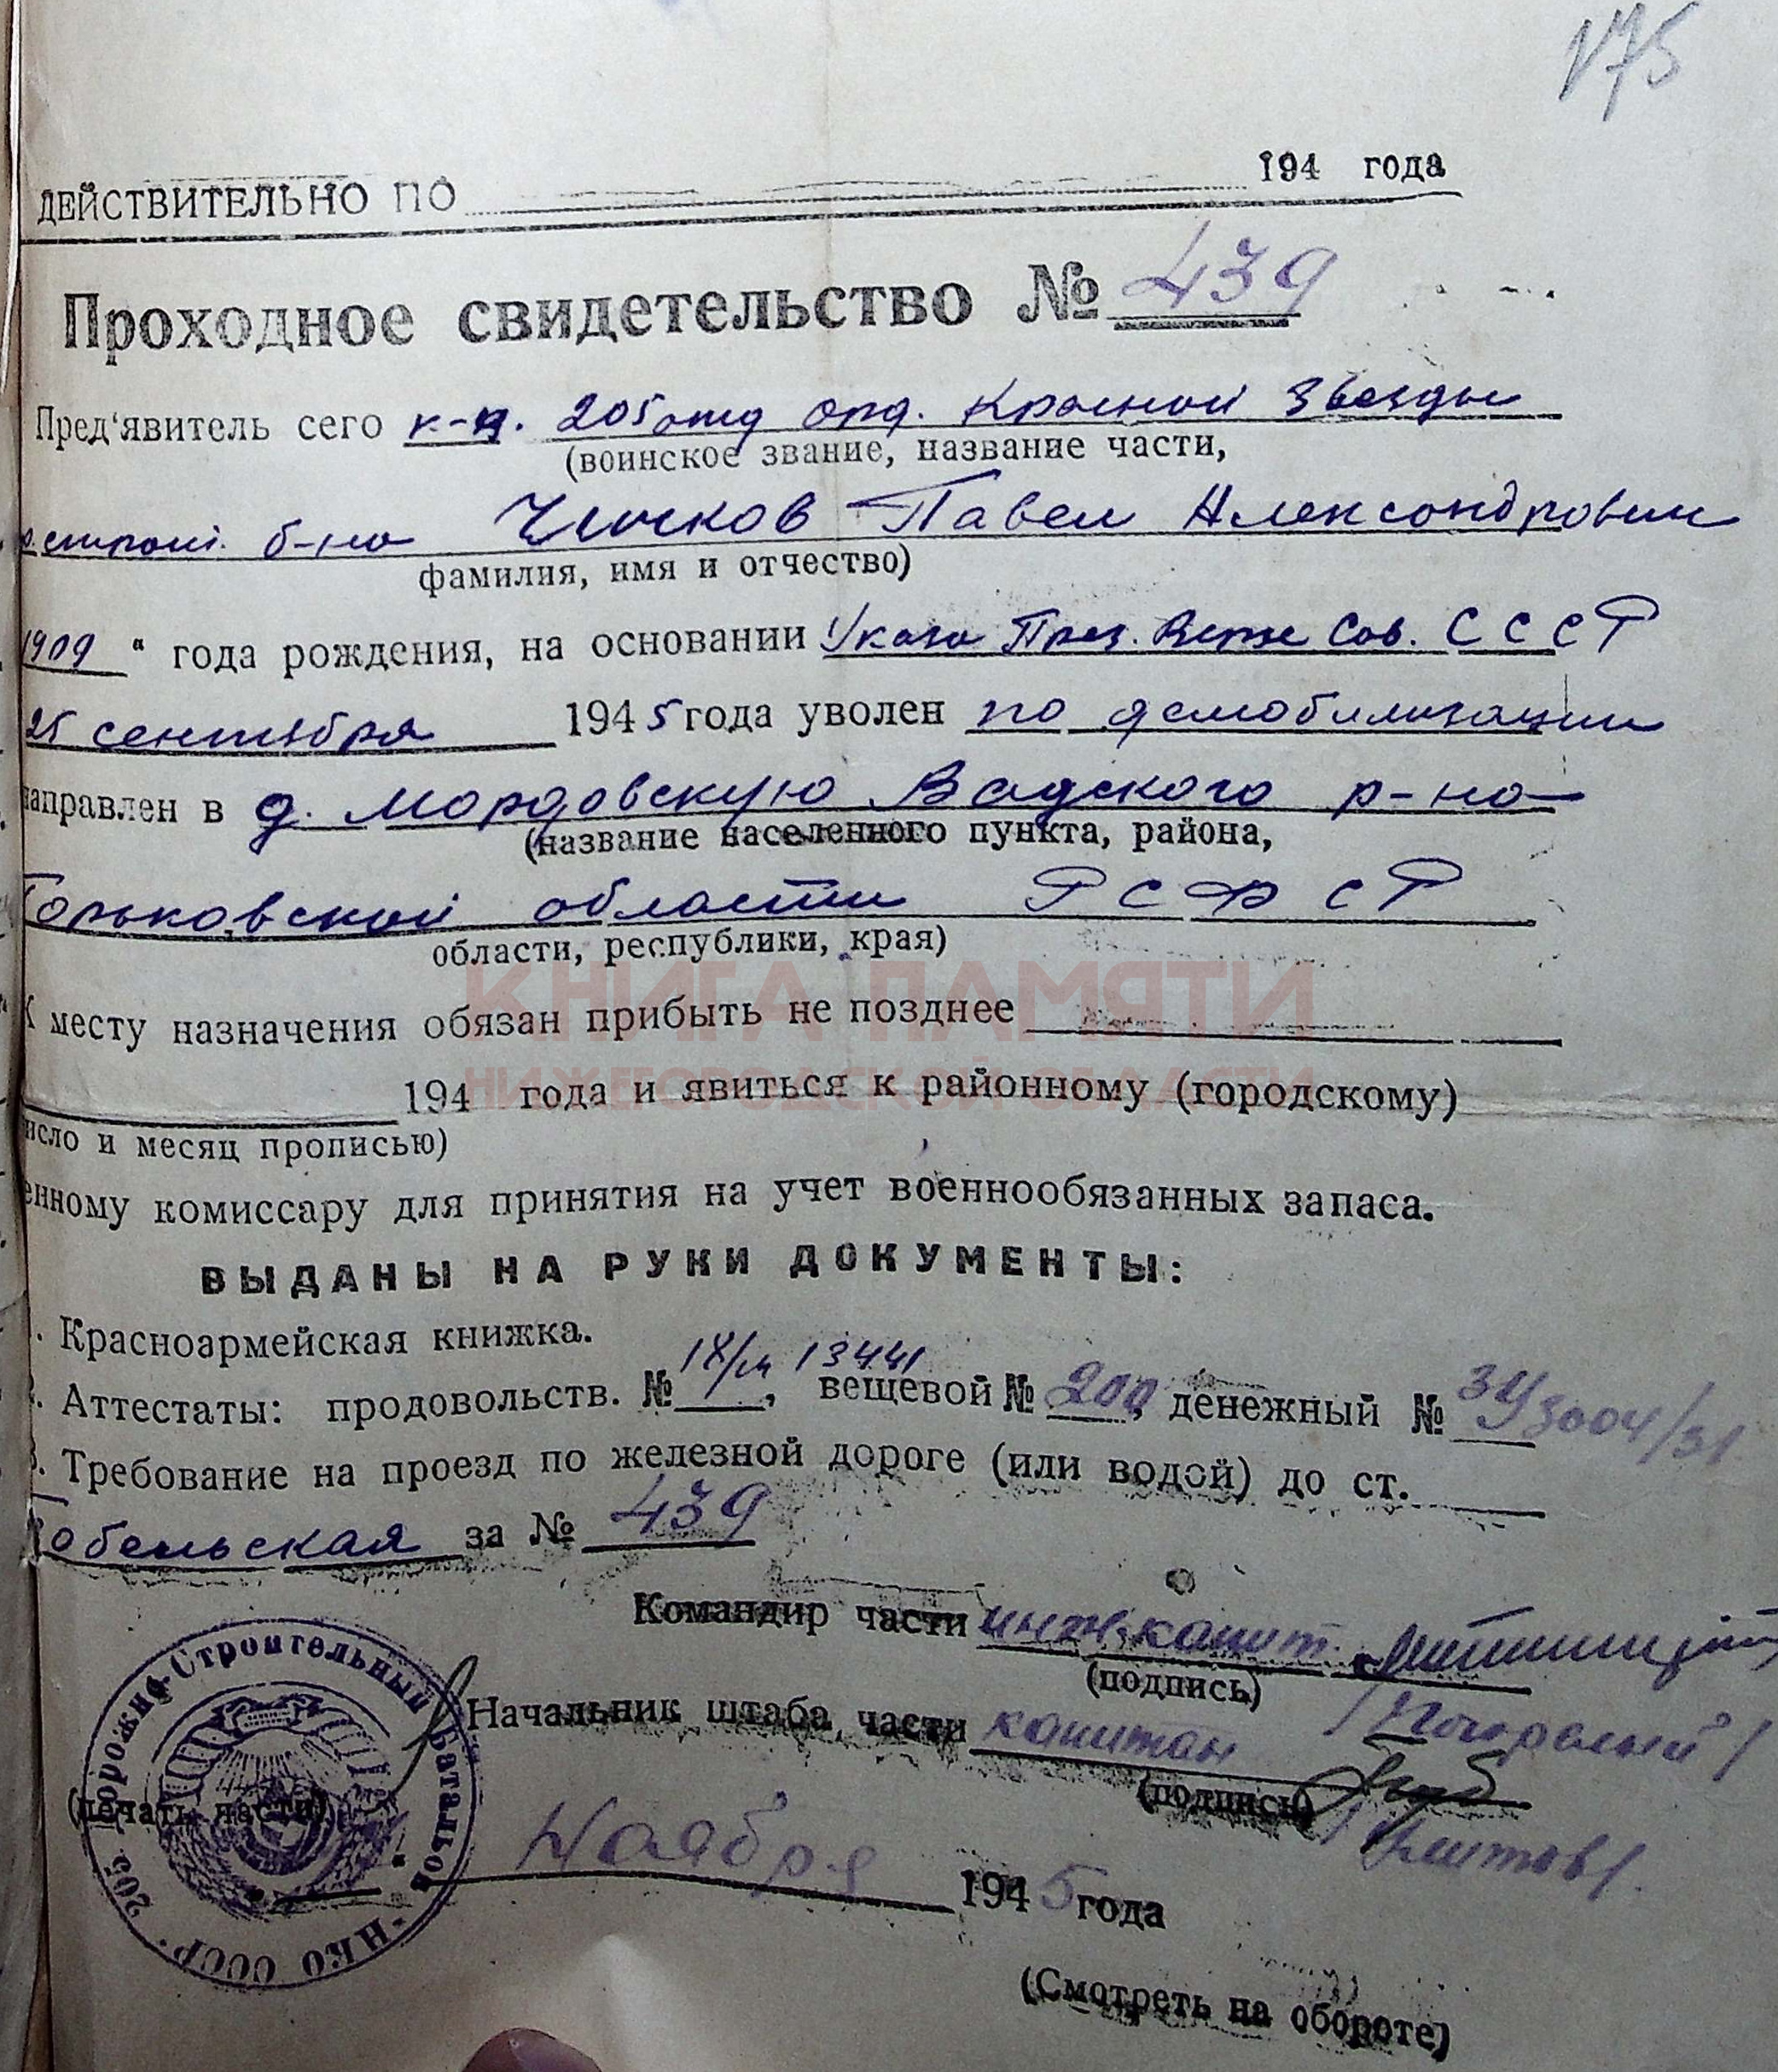 175
ДЕЙСТВИТЕЛЬНО ПО 194 года
Проходное свидетельство № 439
Пред'явитель сего к-ц. 205 отд орд. Красной Звезды
(воинское звание, название части,
строит. б-на Чичков Павел Александрович
фамилия, имя и отчество)
1909 " года рождения, на основании Указа През. Верх Сов. СССР
25 сентября 1945 года уволен по демобилизации
направлен в д. Мордовскую Вадского р-на
(название населенного пункта, района,
Горьковской области РСФСР
области, республики, края)
КНИГА ПАМЯТИ
НИЖЕГОРОДСКОЙ ОБЛАСТИ
К месту назначения обязан прибыть не позднее
194 года и явиться к районному (городскому)
исло и месяц прописью)
енному комиссару для принятия на учет военнообязанных запаса.
ВЫДАНЫ НА РУКИ ДОКУМЕНТЫ:
. Красноармейская книжка.
. Аттестаты: продовольств. № 13441, вещевой № 200, денежный № 3004/31
3. Требование на проезд по железной дороге (или водой) до ст.
Бобельская за № 439
Командир части инж. капит.
(подпись)
Начальник штаба части капитан
(подпись)
(печать части)
205 Дорожно-Строительный Батальон
НКО СССР
Ноября 1945 года
(Смотреть на обороте)